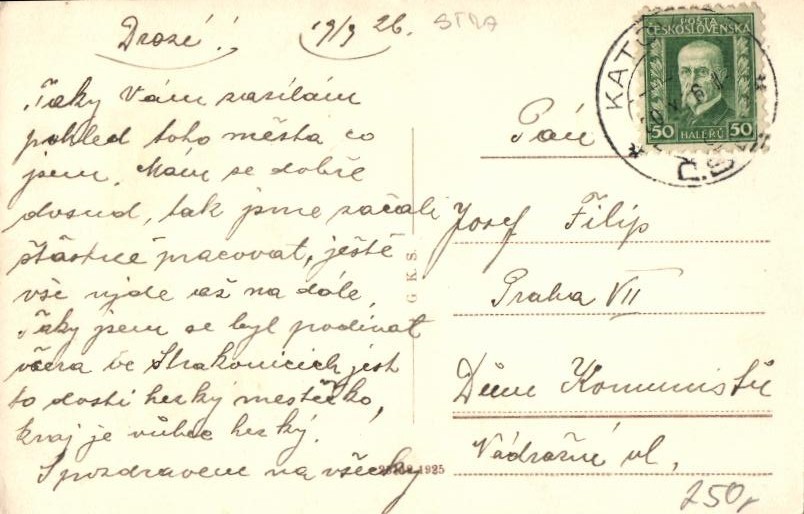 Drozé! 19/9 26. STRA
Taky Vám zasílám
pohled toho města co
jsem. Mám se dobře
dosud, tak jsme začali
šťastně pracovat, ještě
vše ujde až na dále,
Taky jsem se byl podívat
včera ve Strakonicích, jest
to dosti hezký městečko,
kraj je vůbec hezký.
S pozdravem na všecky
G. K. S.
1925
POŠTA
ČESKOSLOVENSKÁ
50 HALÉŘŮ 50
KATO
Č.S.R.
Pán
Josef Filip
Praha VII
Dům Komunistů
Nádražní ul,
250,